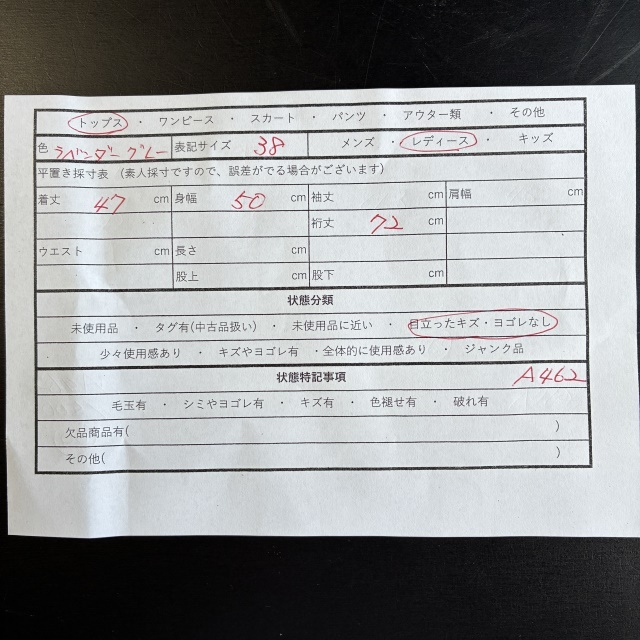 トップス ・ ワンピース ・ スカート ・ パンツ ・ アウター類 ・ その他
色 ラベンダーグレー 表記サイズ 38 メンズ ・ レディース ・ キッズ
平置き採寸表 (素人採寸ですので、誤差がでる場合がございます)
着丈 47 cm 身幅 50 cm 袖丈 cm 肩幅 cm
裄丈 72 cm
ウエスト cm 長さ cm
股上 cm 股下 cm
状態分類
未使用品 ・ タグ有(中古品扱い) ・ 未使用品に近い ・ 目立ったキズ・ヨゴレなし
少々使用感あり ・ キズやヨゴレ有 ・全体的に使用感あり ・ ジャンク品
状態特記事項 A462
毛玉有 ・ シミやヨゴレ有 ・ キズ有 ・ 色褪せ有 ・ 破れ有
欠品商品有( )
その他( )